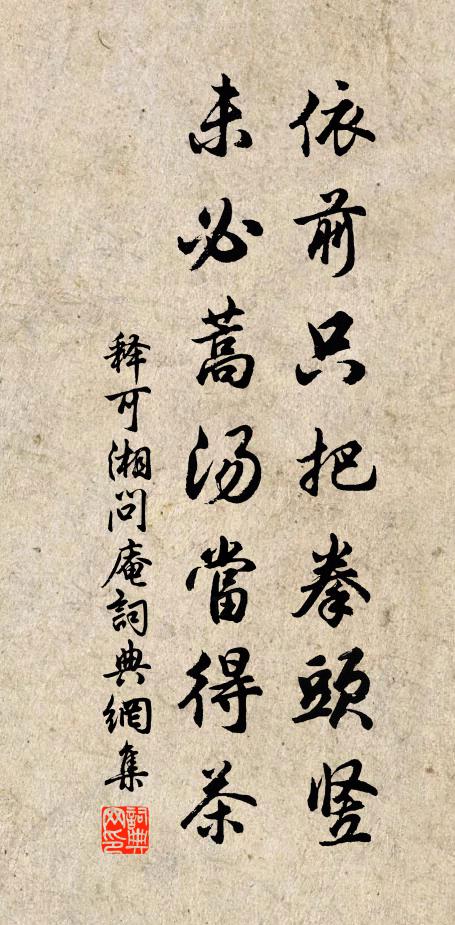 依前只把拳頭竖
未必蒿汤當得茶
释可湘问庵詞典網集
詞典网印